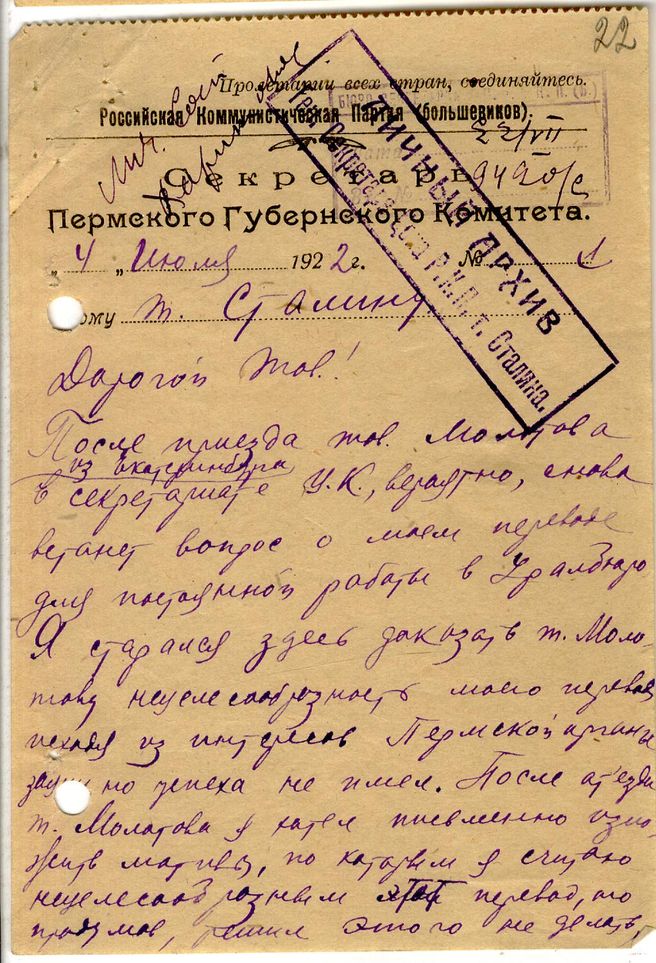 22
Пролетарии всех стран, соединяйтесь.
Российская Коммунистическая Партия (большевиков).
22/VII
Секретарь
9490/с
Пермского Губернского Комитета.
"4" Июля 1922 г. № 1
Кому т. Сталину
ЛИЧНЫЙ АРХИВ
Ген. Секретаря ЦК Р.К.П. т. Сталина.
Дорогой тов.!
После приезда тов. Молотова
из Екатеринбурга
в секретариате Ц.К., вероятно, снова
встанет вопрос о моем переводе
для постоянной работы в Уралбюро
Я старался здесь доказать т. Моло-
тову нецелесообразность моего перевода
исходя из интересов Пермской органи
зации но успеха не имел. После от'езда
т. Молотова я хотел письменно изло-
жить мотивы, по которым я считаю
нецелесообразным этот перевод, но
продумав, решил этого не делать,